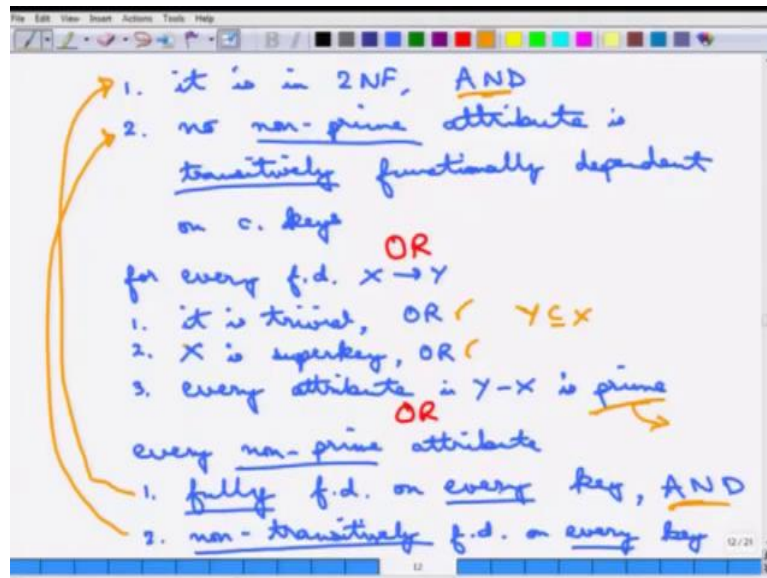 File Edit View Insert Actions Tools Help
1. it is in 2NF, AND
2. no non-prime attribute is
transitively functionally dependent
on c. keys
OR
for every f.d. X → Y
1. it is trivial, OR ( Y ⊆ X
2. X is superkey, OR (
3. every attribute in Y-X is prime
OR
every non-prime attribute
1. fully f.d. on every key, AND
2. non-transitively f.d. on every key
12/21
12